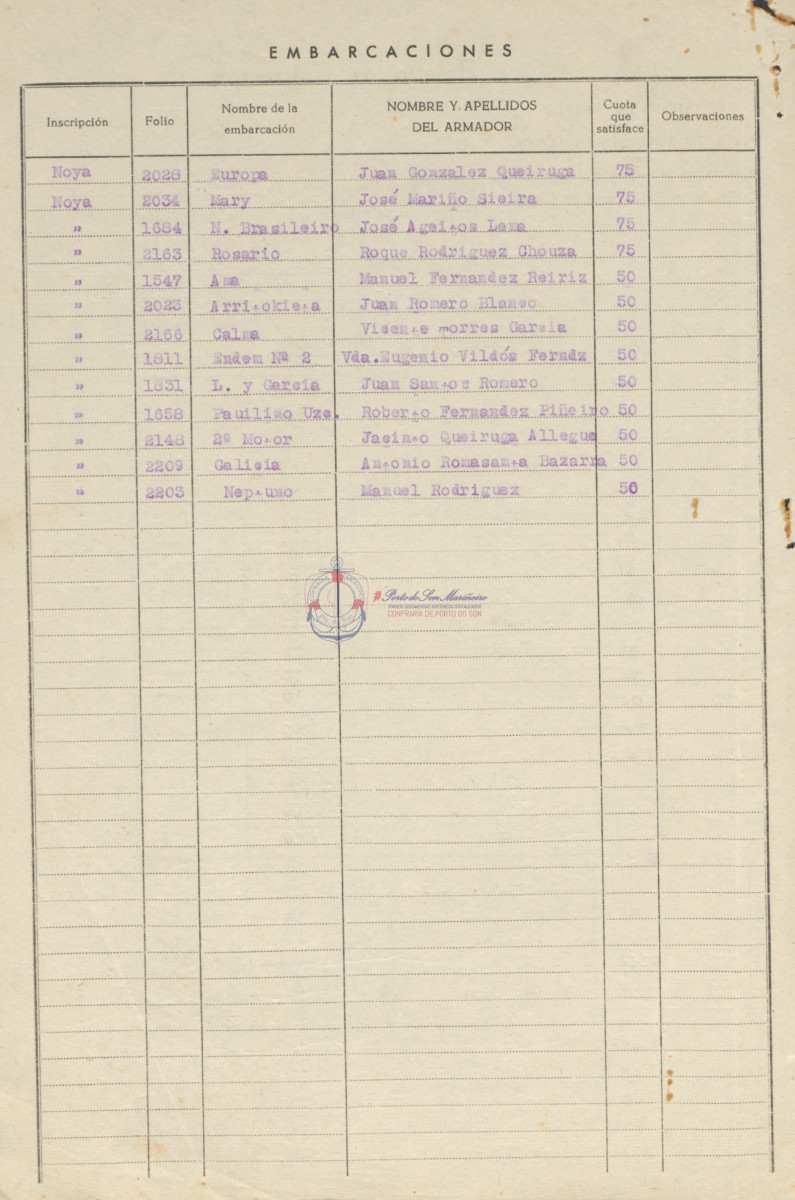 EMBARCACIONES
Inscripción Folio Nombre de la embarcación NOMBRE Y APELLIDOS DEL ARMADOR Cuota que satisface Observaciones
Noya 2028 Europa Juan Gonzalez Queiruga 75
Noya 2034 Mary José Mariño Sieira 75
" 1684 N. Brasileiro José Ageitos Lema 75
" 2163 Rosario Roque Rodriguez Chouza 75
" 1547 Ana Manuel Fernandez Reiriz 50
" 2023 Arritokieta Juan Romero Blanco 50
" 2166 Calma Vicente Torres Garcia 50
" 1811 Nº 2 Vda. Eugenio Vildós Ferndz 50
" 1831 L. y Garcia Juan Santos Romero 50
" 1658 Pauilino Uze. Roberto Fernandez Piñeiro 50
" 2148 2º Motor Jacinto Queiruga Allegue 50
" 2209 Galicia Antonio Romasanta Bazarra 50
" 2203 Neptuno Manuel Rodriguez 50
Porto do Son Mariñeiro
FONDOS DOCUMENTAIS HISTÓRICOS DIXITALIZADOS
CONFRARÍA DE PORTO DO SON